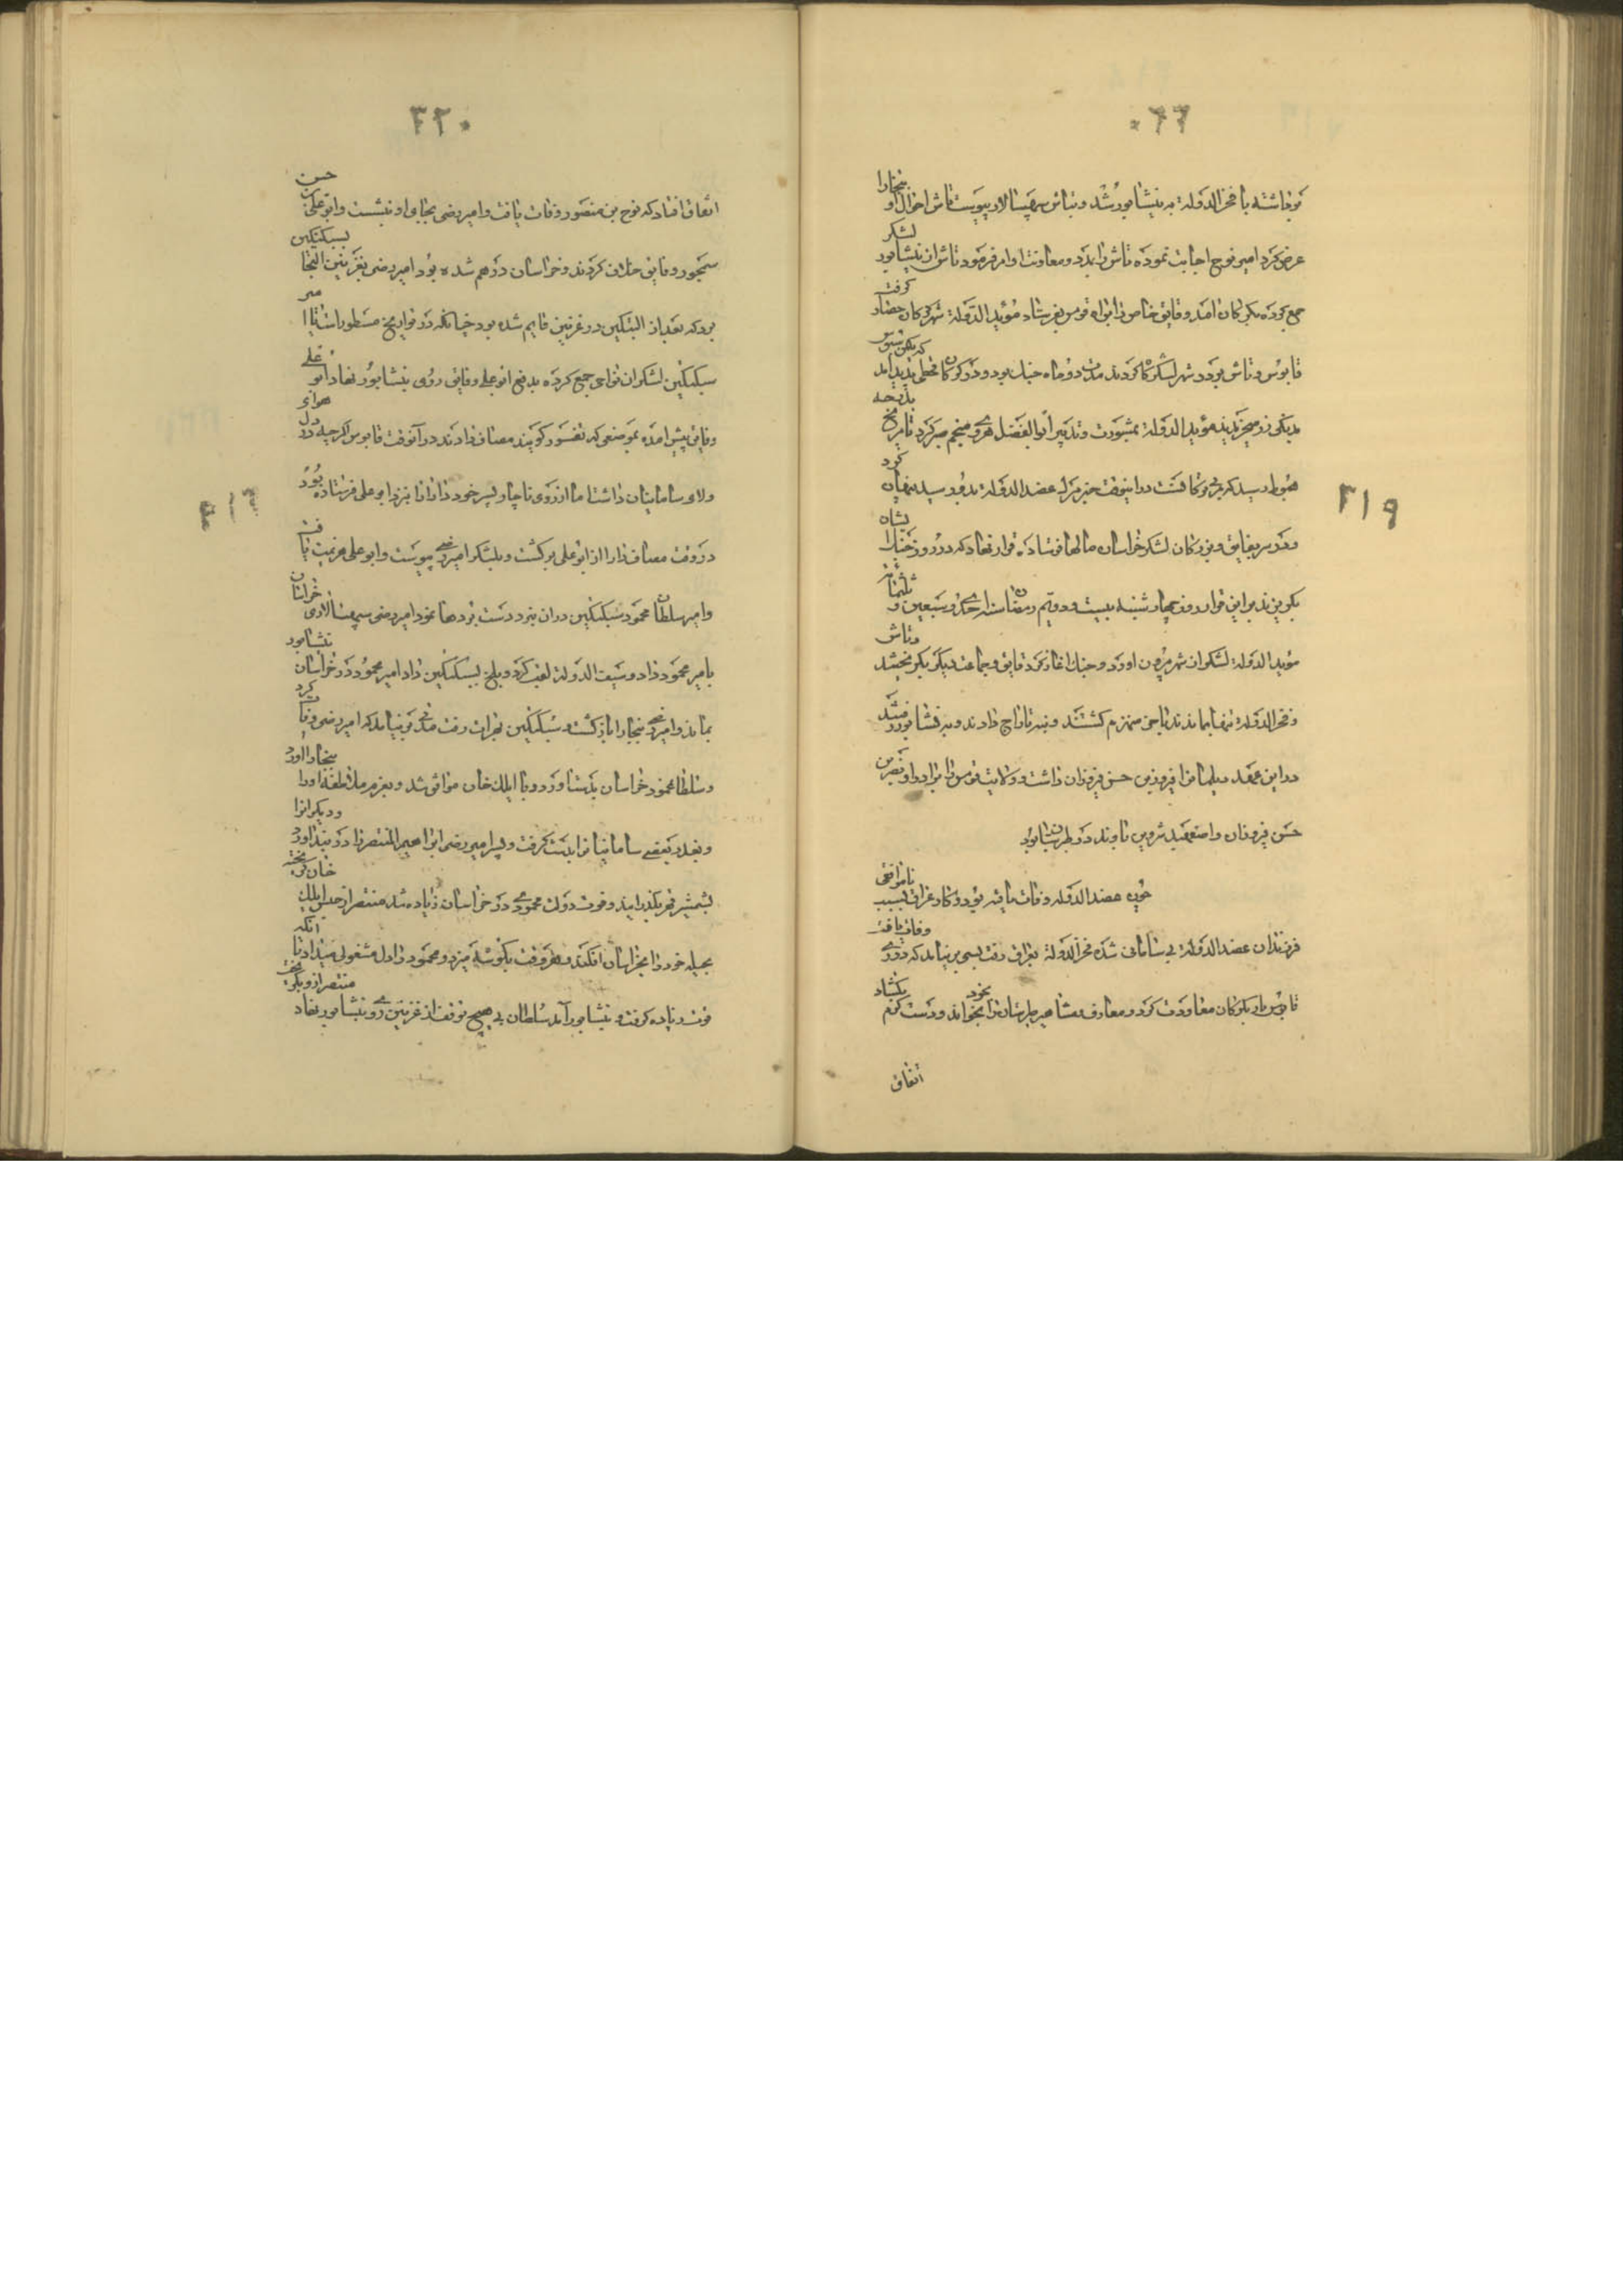 برداشته با فخر الدوله به نیشابور شد و بتاش سپهسالار پیوست تاش احوال او ببخارا
عرض کرد امیر نوح اجابت نموده تاش را بدد و معاونت او امر فرمود تاش از نیشابور لشکر
جمع کرده بکرکان امد و فایق خاص را براه قومس بفرستاد مؤید الدوله شهر کرکان حصار کرفت
قابوس و تاش بر در شهر لشکرکاه کردند مدت دو ماه جنك بود و در کرکان قحطی پدید امد که یکمن سبوس
بدیکی زر میخریدند مؤید الدوله بمشورت و تدبیر ابو الفضل هروی منجم صبر کرد تا مریخ بدرجه
هبوط رسید در اینوقت خبر مرك عضد الدوله بدو رسید پنهان کرد
و در سر بفایق و بزرکان لشکر خراسان مالها فرستاده قرار نهاد که در روز جنك پشت
بکریزند بر این قرار روز چهار شنبه بیست و دویم رمضان سنه احدی و سبعین و ثلثمائه
مؤید الدوله لشکر از شهر بیرون اورد و جنك اغاز کرد فایق و جماعت دیکر بکریختند و تاش
و فخر الدوله تنها بماندند تا جمله منهزم کشتند و بنه تاراج دادند و به نیشابور رفتند
در این عهد دیلمان را فیروزان بن حسن فیروزان داشت و ولایت قومس را برادر او نصر بن
حسن فیروزان و اصفهبد شروین باوند در طبرستان بود
چون عضد الدوله وفات یافته بود و کار عراق بسبب ناموافقی
فرزندان عضد الدوله بی سامانی شده فخر الدوله بعراق رفت بسی بر نیامد که در ری وفات یافت
قابوس باز بکرکان معاودت کرد و معارف و مشاهیر طبرستان را بخود بخواند و دست کرم بکشاد
اتفاق
۳۱۹
۳۲۰
اتفاق افتاد که نوح بن منصور وفات یافت و امیر رضی بجای او بنشست و ابو علی بن حسن
سیمجور و فایق خلاف کردند و خراسان درهم شده بود امیر رضی بغزنین التجا بسبکتکین
برد که بعد از البتکین در غزنین قایم شده بود چنانکه در تواریخ مسطور است تا امیر
سبکتکین لشکر از نواحی جمع کرده بدفع ابو علی و فایق روی بنیشابور نهاد ابو علی
و فایق پیش امده بموضعی که کویند مصاف دادند در آنوقت قابوس اکرچه در دل هوای
ولای سامانیان داشت اما از روی ناچار پسر خود دارا را بنزد ابو علی فرستاده بود
در وقت مصاف دارا از ابو علی برکشت و بلشکر امیر رضی پیوست و ابو علی هزیمت یافت
و امیر سلطان محمود سبکتکین در ان نبرد دست بردها نمود امیر رضی سپهسالاری خراسان
بامیر محمود داد و سیف الدوله لقب کرد و بلخ بسبکتکین داد امیر محمود در خراسان نیشابور
بماند و امیر رضی ببخارا بازکشت و سبکتکین بهرات رفت مدتی بر نیامد که امیر رضی وفات کرد
و سلطان محمود خراسان بدست اورد و با ایلك خان موافق شد و بعزم ملاطفه او را ببخارا اورد
و بغدر بعضی سامانیان را بدست کرفت و پسر امیر رضی ابراهیم المنتصر را در بند اورد و دیکران را
بشمشیر قهر بکذرانید و قوت دولت محمودی در خراسان زیاده شد منتصر از حبس ایلك خان کریخته
بحیله خود را بخراسان افکند و هر وقت بکوشه میزد و محمود را دل مشغولی میداد تا انکه
قوت زیاده کرفت و بنیشابور آمد سلطان بی هیچ توقف از غزنین روی بنیشابور نهاد منتصر از و بکریخت